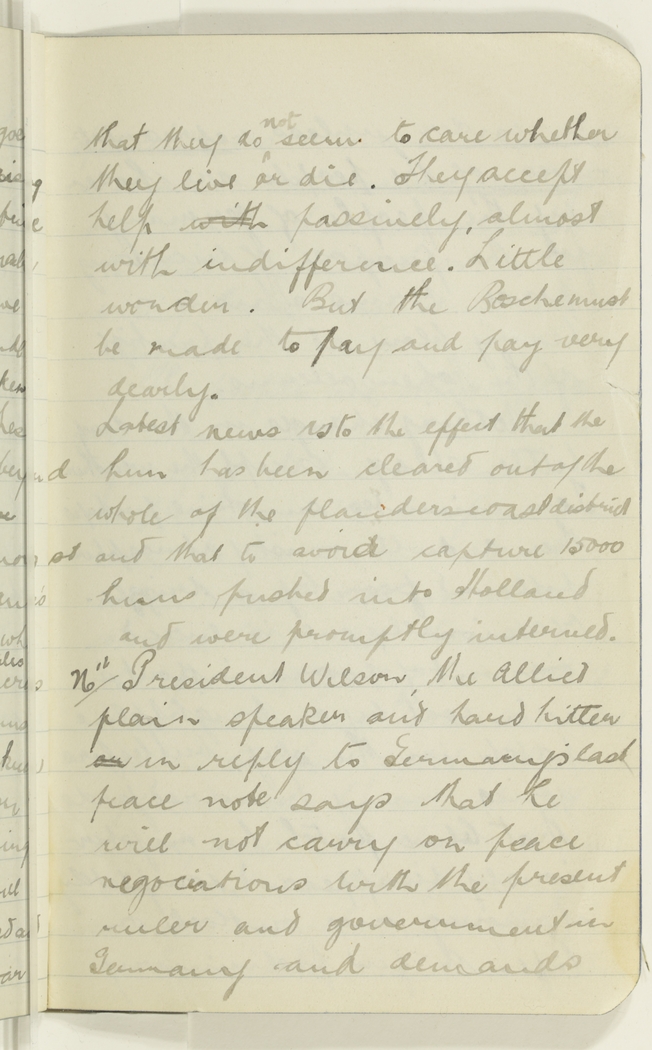 that they do not seem to care whether
they live or die. They accept
help with passively, almost
with indifference. Little
wonder. But the Bosche must
be made to pay and pay very
dearly.
Latest news is to the effect that the
hun has been cleared out of the
whole of the flanders coast district
and that to avoid capture 15000
huns pushed into Holland
and were promptly interned.
President Wilson, the Allied
plain speaker and hard hitter
in reply to Germany's last
peace note says that he
will not carry on peace
negociations with the present
ruler and government in
Germany and demands